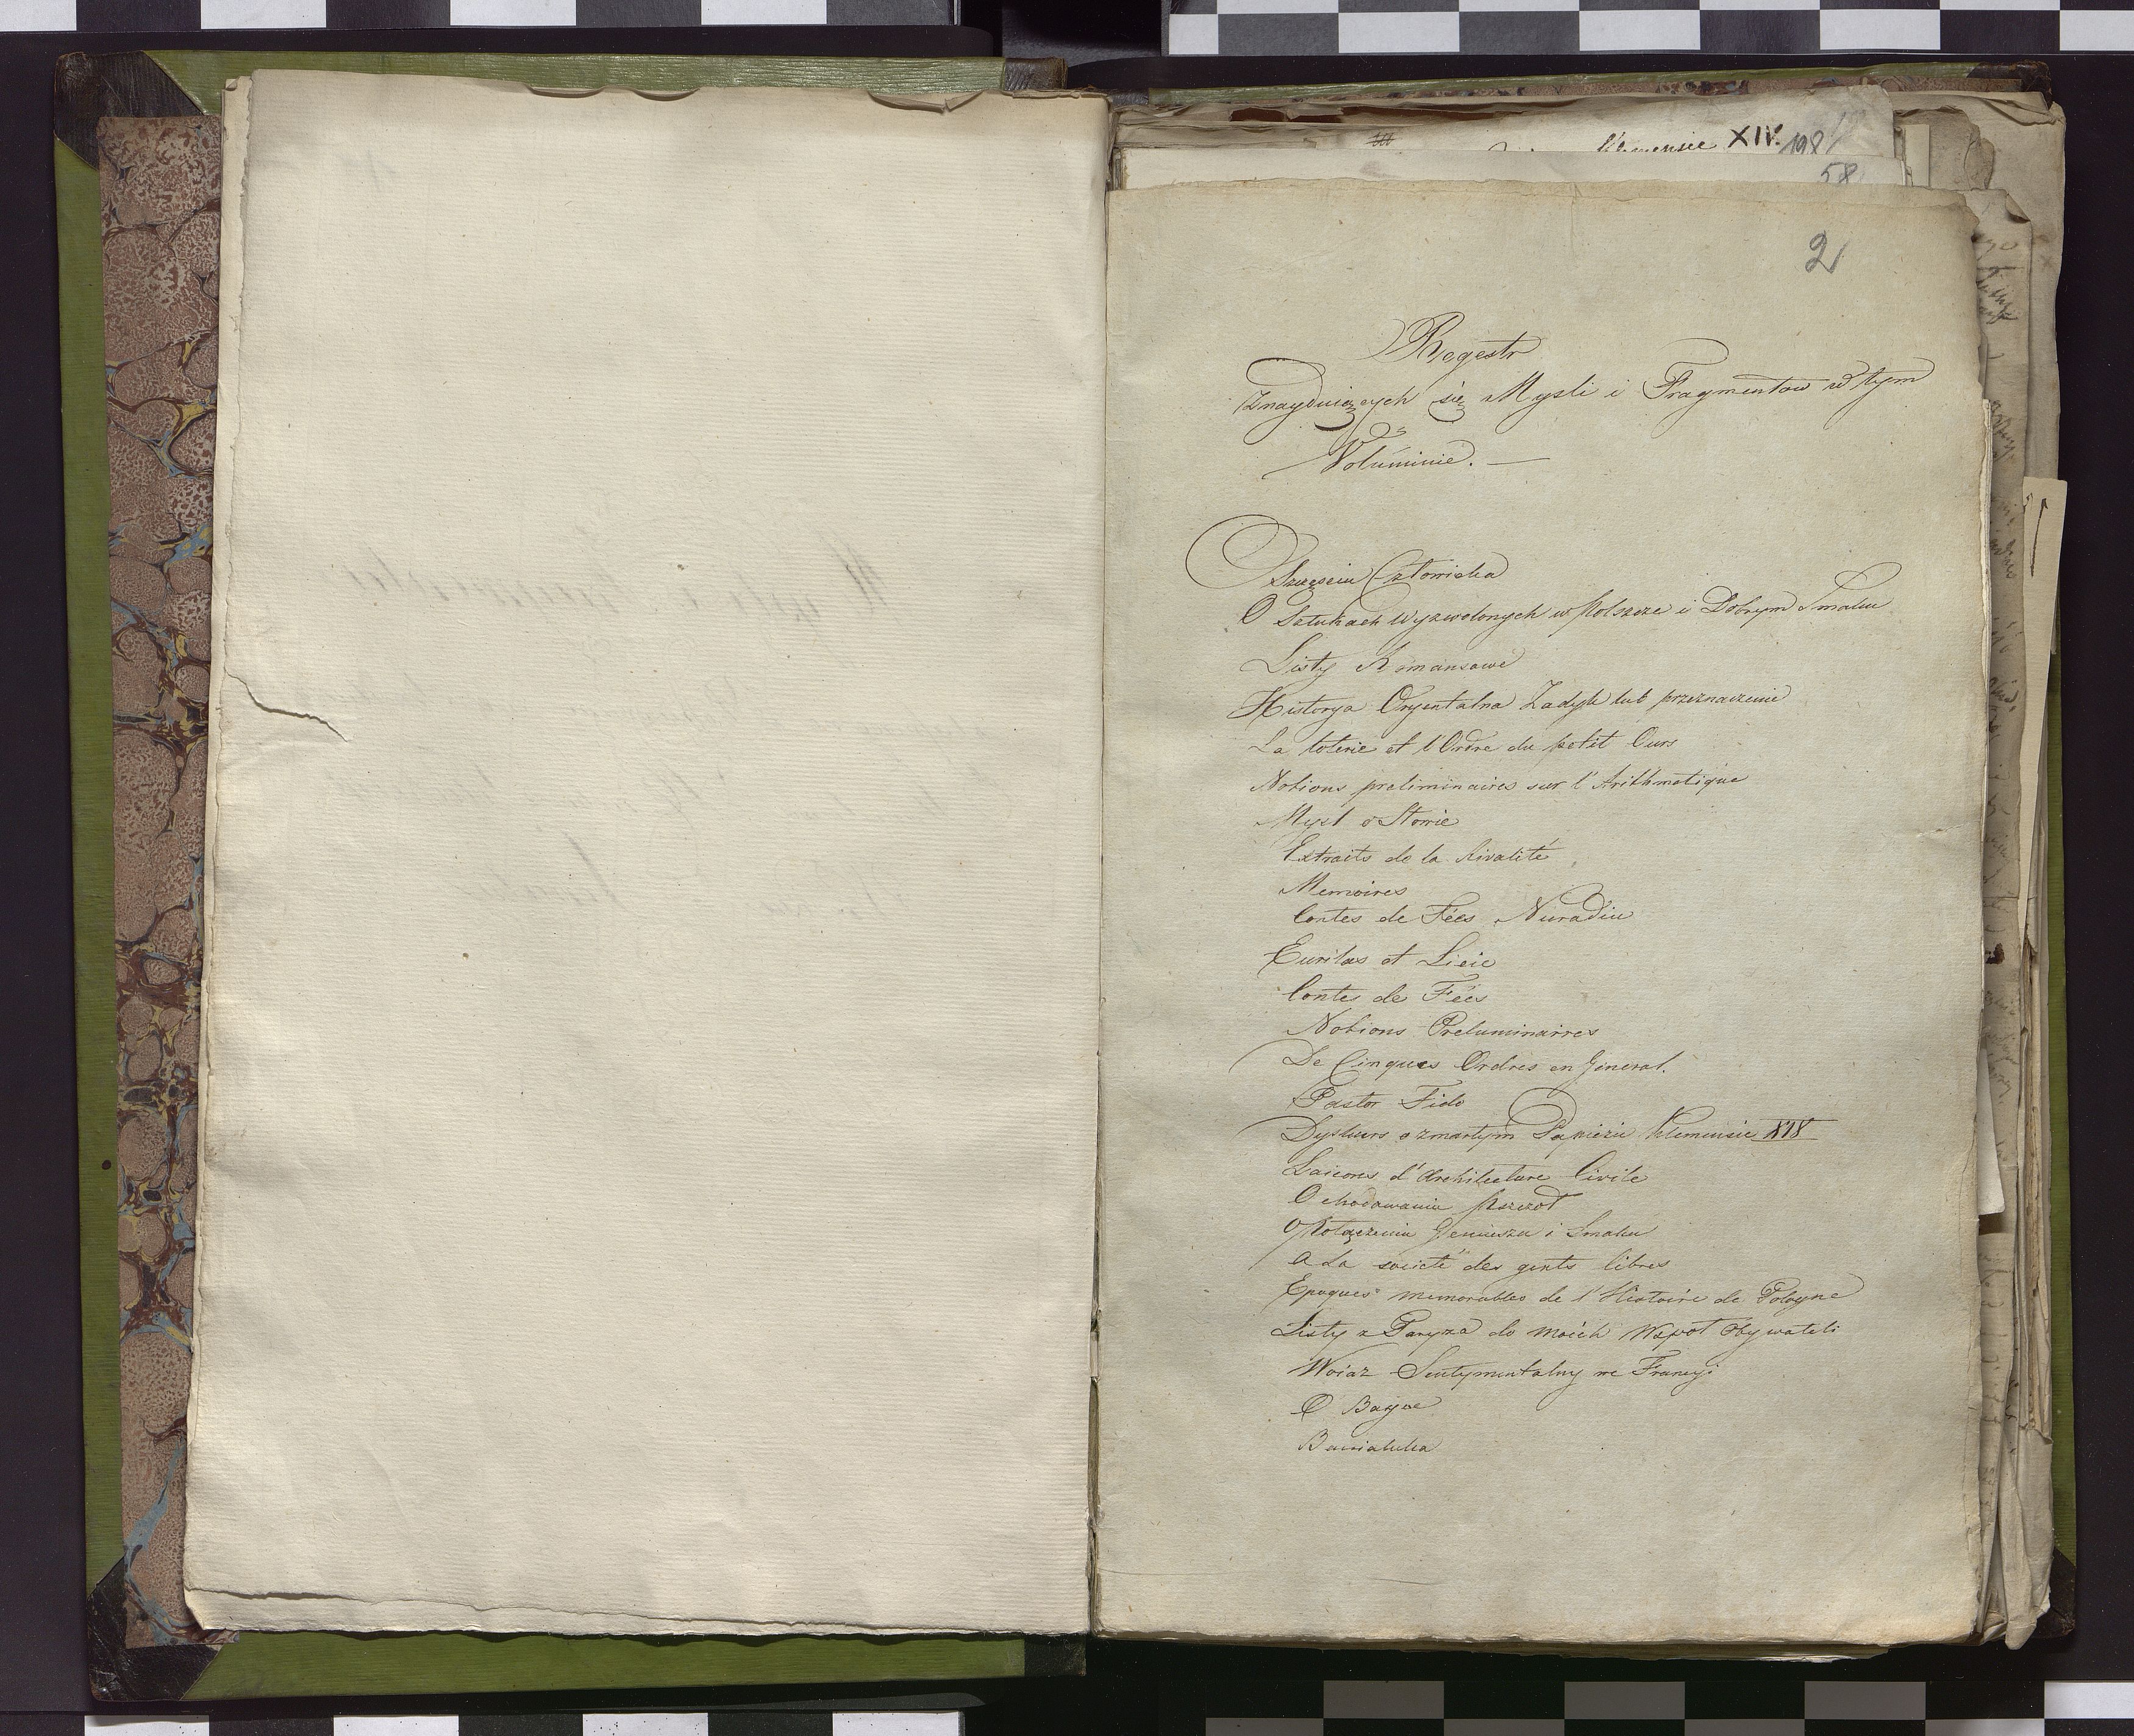 Klemensie XIV. 198
58
2
Regestr
Znayduiących się Mysli i Fragmentow w tym
Voluminie. —
O Szczęsciu Człowieka
O Sztukach Wyzwolonych w Polszcze i Dobrym Smaku
Listy Romansowe
Historya Oryentalna Zadyk lub przeznaczenie
La loterie et l'Ordre du petit Ours
Notions preliminaires sur l'Arithmetique
Mysl o Stowie
Extraits de la Rivalité
Memoires
Contes de Fées Nuradin
Eurilas et Licie
Contes de Fées
Notions Preluminaires
De Cinques Ordres en General.
Pastor Fido
Dyskurs o zmarłym Papieżu Klemensie XIV
Laicones d'Architecture Civile
O chodowaniu Pszczoł
O Połączeniu Geniuszu i Smaku
A La societé des gents libres
Epoques memorables de l'Histoire de Pologne
Listy z Paryża do moich Wspoł Obywateli
Woiaz Sentymentalny we Francyi
O Bayce
Bawialuka